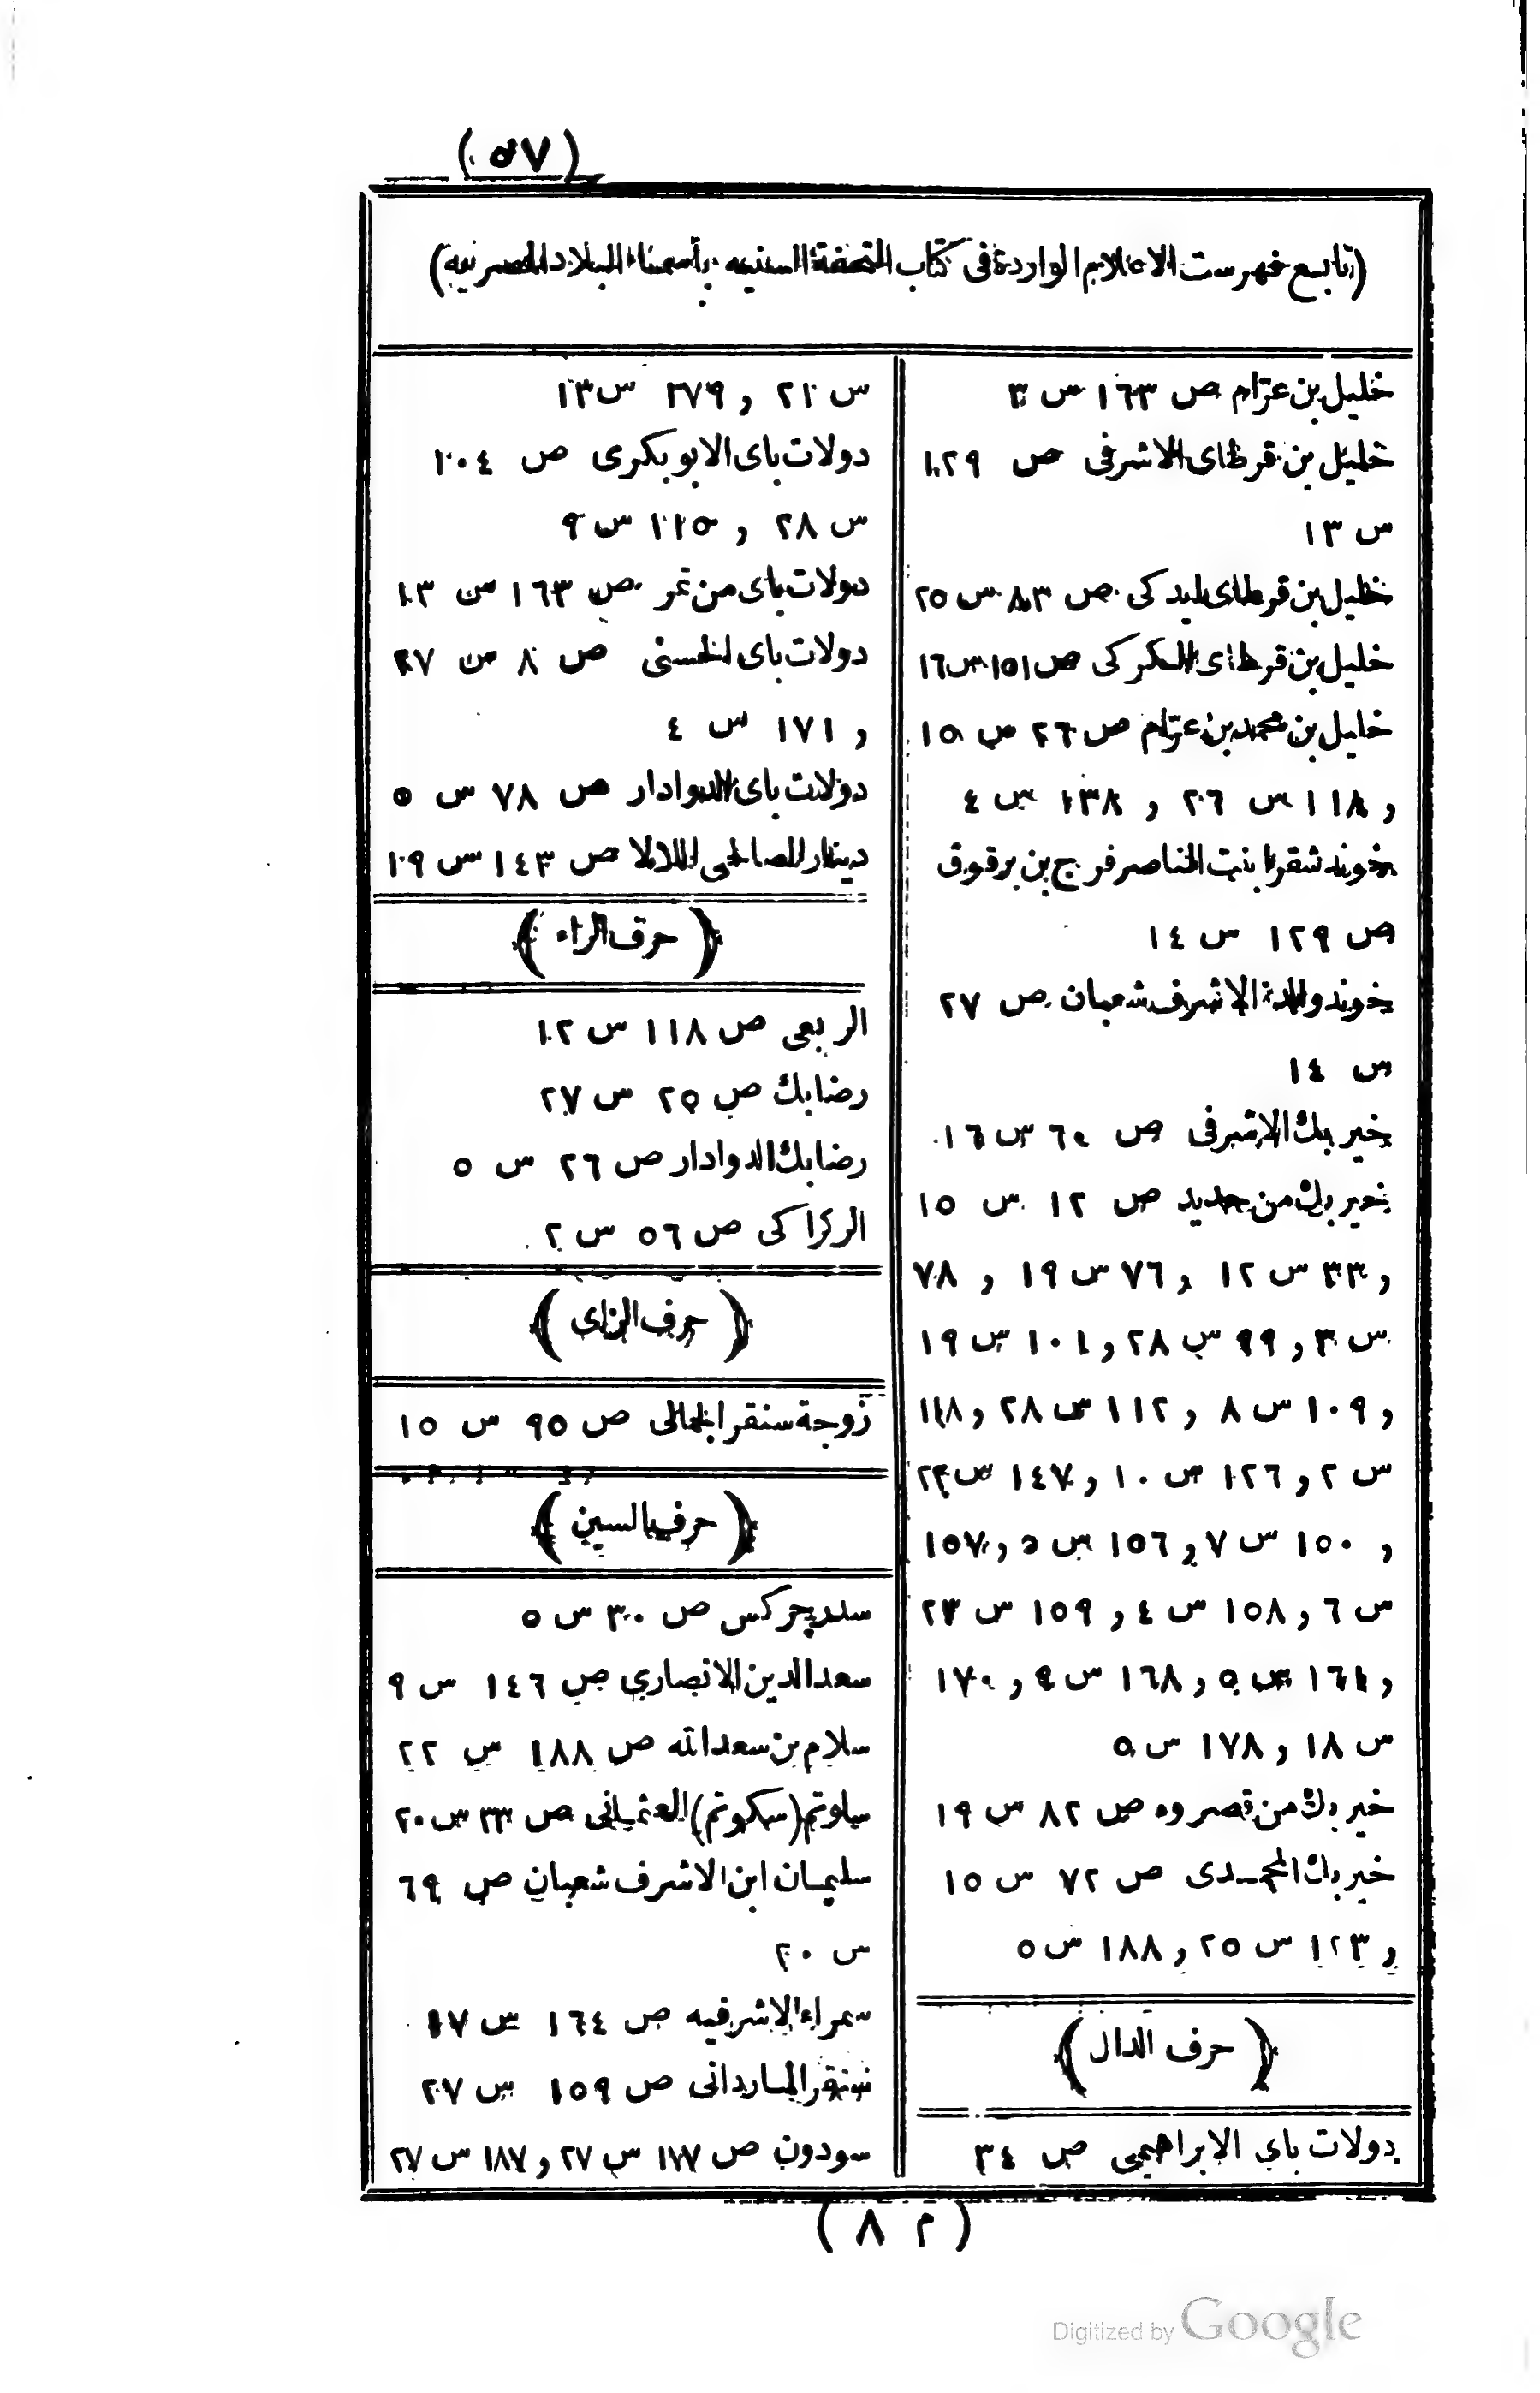 (٥٧)
(تابع فهرست الاعلام الواردة فى كتاب التحفة السنيه بأسماء البلاد المصريه)
خليل بن عرّام ص ١٦٣ س ٣
خليل بن قرطاى الاشرفى ص ١٢٩
س ١٣
خليل بن قرطاى ليدكى ص ٨٣ س ٢٥
خليل بن قرطاى الكركى ص ١٥١ س ١٦
خليل بن محمد بن عرّام ص ٢٦ س ١٥
و ١١٨ س ٢٦ و ١٣٨ س ٤
خوند شقرا بنت الناصر فرج بن برقوق
ص ١٢٩ س ١٤
خوند والدة الاشرف شعبان ص ٢٧
س ١٤
خير بك الاشرفى ص ٦٠ س ١٦
خير بك من حديد ص ١٢ س ١٥
و ٣٣ س ١٢ و ٧٦ س ١٩ و ٧٨
س ٣ و ٩٩ س ٢٨ و ١٠١ س ١٩
و ١٠٩ س ٨ و ١١٢ س ٢٨ و ١١٨
س ٢ و ١٢٦ س ١٠ و ١٤٧ س ٢٤
و ١٥٠ س ٧ و ١٥٦ س ٥ و ١٥٧
س ٦ و ١٥٨ س ٤ و ١٥٩ س ٢٣
و ١٦١ س ٥ و ١٦٨ س ٩ و ١٧٠
س ١٨ و ١٧٨ س ٥
خير بك من قصروه ص ٨٢ س ١٩
خير بك المحمدى ص ٧٢ س ١٥
و ١٢٣ س ٢٥ و ١٨٨ س ٥
(حرف الدال)
دولات باى الابراهيمى ص ٣٤
س ٢١ و ١٧٩ س ١٣
دولات باى الابوبكرى ص ١٠٤
س ٢٨ و ١١٥ س ٩
دولات باى من تمر ص ١٦٣ س ١٣
دولات باى الحسنى ص ٨ س ٢٧
و ١٧١ س ٤
دولات باى الدوادار ص ٧٨ س ٥
دينار الصالحى اللالا ص ١٤٣ س ١٩
(حرف الراء)
الربعى ص ١١٨ س ١٢
رضا بك ص ٢٥ س ٢٧
رضا بك الدوادار ص ٢٦ س ٥
الركراكى ص ٥٦ س ٢
(حرف الزاى)
زوجة سنقر الجمالى ص ٩٥ س ١٥
(حرف السين)
سدد چركس ص ٣٠ س ٥
سعد الدين الانصارى ص ١٤٦ س ٩
سلام بن سعد الله ص ١٨٨ س ٢٢
سلوتم (سكوتم) العثمانى ص ٣٣ س ٢٠
سليمان ابن الاشرف شعبان ص ٦٩
س ٢٠
سمراء الاشرفيه ص ١٦٤ س ١٧
سنقر الماردانى ص ١٥٩ س ٢٧
سودون ص ١٧٧ س ٢٧ و ١٨٧ س ٢٧
(م ٨)
Digitized by Google